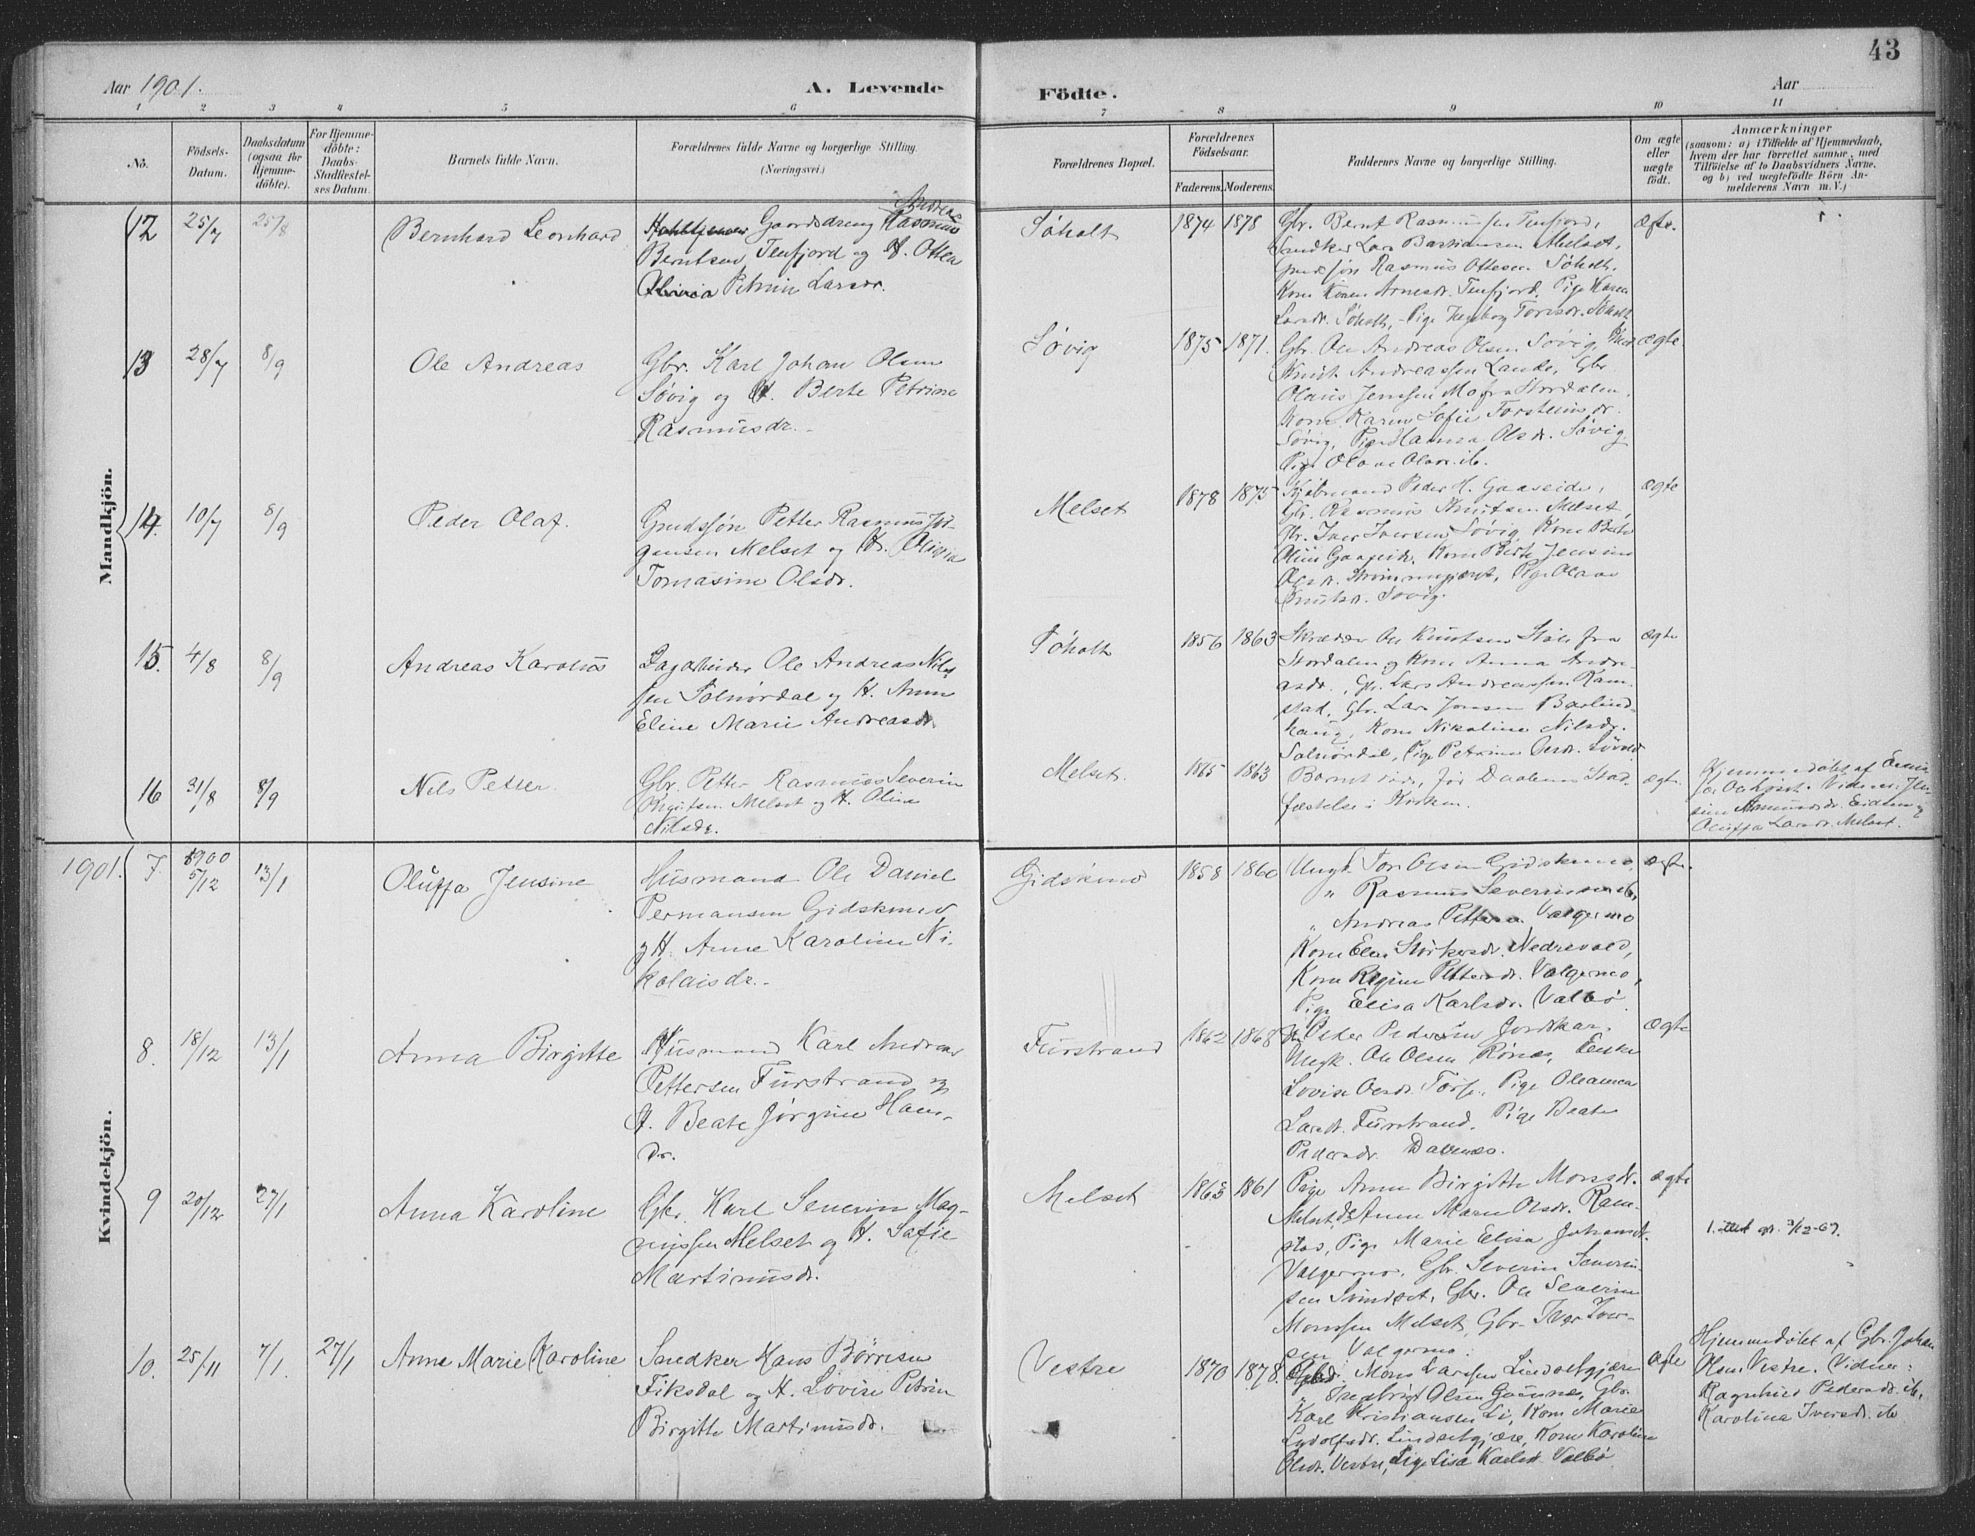 43
Aar 1901.
A. Levende
Födte.
Aar
1 2 3 4 5 6 7 8 9 10 11
No.
Födsels-
Datum.
Daabsdatum
(ogsaa for
Hjemme-
döbte).
For Hjemme-
döbte:
Daabs-
Stadfæstel-
ses Datum.
Barnets fulde Navn.
Forældrenes fulde Navne og borgerlige Stilling.
(Næringsvei.)
Forældrenes Bopæl.
Forældrenes
Födselsaar.
Faderens. Moderens.
Faddernes Navne og borgerlige Stilling.
Om ægte
eller
uægte
födt.
Anmærkninger
(saasom: a) i Tilfælde af Hjemmedaab,
hvem der har forrettet samme, med
Tilföielse af to Daabsvidners Navne,
og b) ved uægtefödte Börn An-
melderens Navn m. V.)
Mandkjön.
12 25/7 25/8 Bernhard Leonhard
Andreas
Gaardsdreng Rasmus
Berntsen Tenfjord og H. Ottea
Petrine Larsdr.
Søholt 1874 1878
Gbr. Bernt Rasmussen Tenfjord,
Snedker Lars Bastiansen Melset,
Rasmus Ottesen Søholt,
Kone Karen Arnesdr. Tenfjord, Pige Karen
Larsdr. Søholt, Pige Ingeborg Søholt
ægte.
13 28/7 8/9 Ole Andreas
Gbr. Karl Johan Olsen
Søvig og H. Berte Petrine
Rasmusdr.
Søvig 1875 1871.
Gbr. Ole Andreas Olsen Søvig,
Knut Andreassen Lande, Gbr.
Olaus Jenssen Mo fra Stordalen,
Kone Karen Sofie Torsteinsdr.
Søvig, Pige Hanna Olsdr. Søvig
Pige Olave Olsdr. ib.
ægte
14. 10/7 8/9 Peder Olaf.
Gaardsøn Petter Rasmus Jør-
gensen Melset og H. Olivia
Tomasine Olsdr.
Melset 1878 1875
Kjøbmand Peder H. Gaaseide,
Gbr. Rasmus Knutsen Melset,
Gbr. Iver Iversen Søvig, Kone Berte
Oline Gaaseide, Kone Berte Jensine
Olsdr. Strømmegjæret, Pige Olave
Knutsdr. Søvig.
ægte
15. 4/8 8/9 Andreas Karolus
Dagarbeider Ole Andreas Nils-
sen Solnørdal og H. Anne
Eline Marie Andreasdr.
Søholt 1856 1863
Skrædder Ole Knutsen Støle fra
Stordalen og Kone Anna Andre-
asdr., Gbr. Lars Andreassen Ram-
stad, Gbr. Lars Jonsen Barlind-
haug, Kone Nikoline Nilsdr.
Solnørdal, Pige Petrine Olsdr. Løvold
ægte
16 31/8 8/9 Nils Petter
Gbr. Petter Rasmus Severin
Melset og H. Oline
Nilsdr.
Melset. 1865 1863
Barnet døde før Daabens Stad-
fæstelse i Kirken.
ægte.
Hjemmedøbt af
Vidner: Jen-
sine Asmundsdr. Eidem og
Oluffa Larsdr. Melset.
Kvindekjön.
1901. 7 1900 5/12 13/1 Oluffa Jensine
Husmand Ole Daniel
Permansen Gidskemo
og H. Anne Karoline Ni-
kolaisdr.
Gidskemo 1858 1860
Ungk. Tore Olsen Gidskemo,
" Rasmus Severinsen ib.
" Andreas Pettersen Valgermo
Kone Elen Størkersdr. Nedrevold,
Kone Regine Pettersdr. Valgermo,
Pige Elisa Karlsdr. Valbø.
ægte.
8. 18/12 13/1 Anna Birgitte
Husmand Karl Andreas
Pettersen Furstrand og
H. Beate Jørgine Hans-
dr.
Furstrand 1862 1868
Gbr. Peder Pedersen Jordskar,
Ungk. Ole Olsen Rønes, Enke
Lovise Olsdr. Torse, Pige Oleanna
Larsdt. Furstrand. Pige Beate
Pedersdr. Dalenes.
ægte
9 20/12 27/1 Anna Karoline
Gbr. Karl Severin Mag-
nussen Melset og H. Sofie
Martinusdr.
Melset 1863 1861
Pige Anne Birgitte Monsdr.
Melset, Anne Marie Olsdr. Ram-
stad, Pige Marie Elisa Johansdr.
Valgermo, Gbr. Severin Severin-
sen Svindset, Gbr. Ole Severin
Monssen Melset, Gbr. Iver Iver-
sen Valgermo.
ægte
10. 25/11 7/1. 27/1 Anne Marie Karoline
Snedker Hans Børresen
Fiksdal og H. Lovise Petrine
Birgitte Martinusdr.
Vestre 1870 1878.
Gbr. Mons Larssen Lindsetgjære
" Ingebrigt Olsen Gaasnes, Gbr.
Karl Kristiansen Li, Kone Marie
Lindsetgjære, Kone Karoline
Olsdr. Vestre, Pige Lisa Karlsd. Valbø
ægte
Hjemmedøbt af Gbr. Johan
Olsen Vestre. Vidner:
Ragnhild Pedersdr. ib.
Karolina Iversdr. ib.